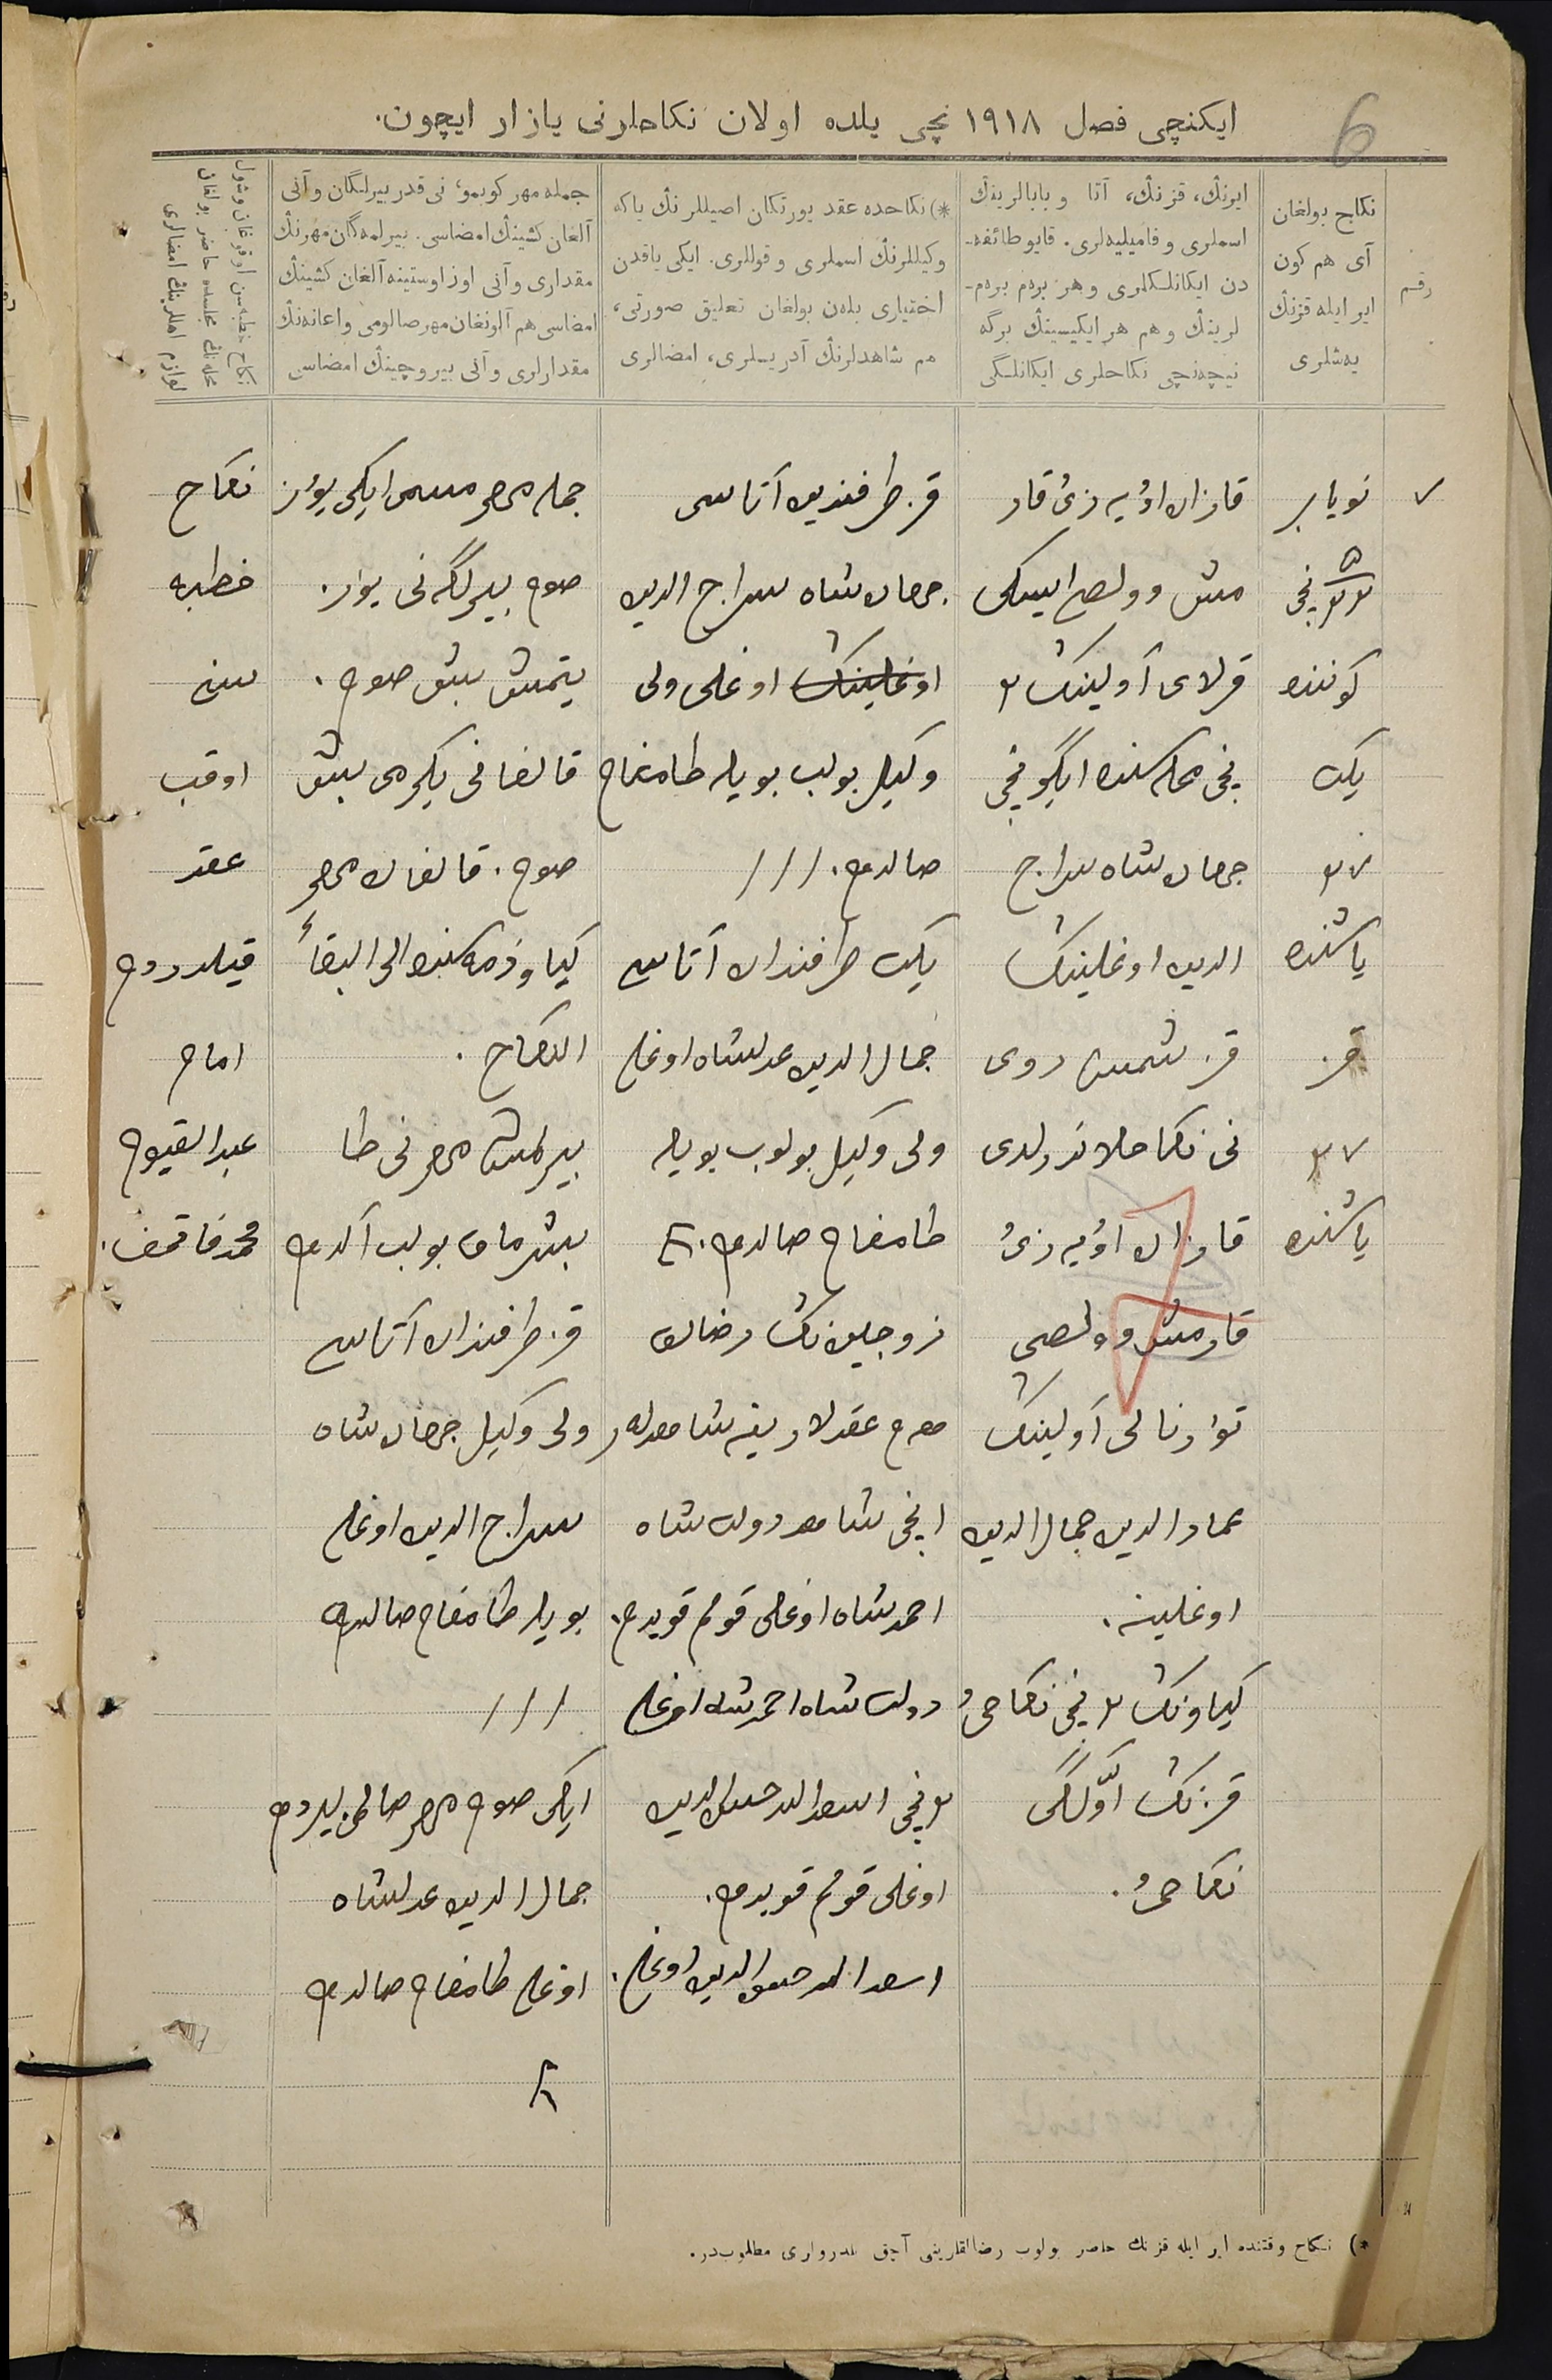 6
ایکنچی فصل ١٩١٨ نچی یلده اولان نکاحلرنی یازار ایچون.
رقم
نکاح بولغان
آی هم کون
ایر ایله قزنڭ
یه‌شلری
ایرنڭ، قزنڭ، آتا و بابالرینڭ
اسملری و فامیلیه‌لری. قایو طائفه-
دن ایکانلکلری و هر برم برم-
لرینڭ و هم هر ایکیسینڭ برگه
نیچه‌نچی نکاحلری ایکانلگی
*) نکاحده عقد یورتکان اصیللرنڭ یاکه
وکیللرنڭ اسملری و قوللری. ایکی یاقدن
اختیاری بله‌ن بولغان تعلیق صورتی،
هم شاهدلرنڭ آدریسلری، امضالری
جمله مهر کوبمو، نی قدر بیرلگان و آنی
آلغان کشینڭ امضاسی. بیرلمه‌گان مهرنڭ
مقداری و آنی اوز اوستینه آلغان کشینڭ
امضاسی هم آلونغان مهر صالومی و اعانه‌نڭ
مقدارلری و آنی بیروچینڭ امضاسی
نکاح خطبه‌سن اوقوغان و شول
محله‌نڭ مجلسده حاضر بولغان
لوازم اهللرینڭ امضالری
٧
نویابر
٥/٢٣ نچی
کوننده
یکت
٢٧
یاشنده
قز
٢٧
یاشنده
قازان اویه‌زی قار
مش وولصے ایسکی
قرلای آولینڭ ٢
نچی محله‌سنده ایگونچی
جهان شاه سراج
الدین اوغلینڭ
قز شمسی روی
نی نکاحلاندردی
قازان اویه‌زی
قارمش وولصی
توارنالی آولینڭ
عماد الدین جمال الدین
اوغلینه.
کیاونڭ ٢ نچی نکاحی
قزنڭ اوّلگی
نکاحی.
قز طرفندین آتاسی
جهان شاه سراج الدین
اوغلینڭ اوغلی ولی
وکیل بولب بویله طامغام
صالدم. ///
یکت طرفندان آتاسے
جمال الدین عدلشاه اوغلے
ولی وکیل بولوب بویله
طامغام صالدم.
زوجین‌نڭ رضالق
هم عقدلارینه شاهدلر
١ نچی شاهد دولت شاه
احمدشاه اوغلی قولم قویدم.
دولت شاه احمدشاه اوغلے
٢ نچی اسدالله حسن الدین
اوغلی قولم قویدم.
اسدالله حسن الدین اوغلے.
جمله مهر مسمی ایکی یوز
صوم بیرلگه‌نی یوز
یتمش بش صوم.
قالغانی یکرمی بش
صوم. قالغان مهر
کیاو ذمه‌سنده الی البقاء
النکاح.
بیرلمش مهرنی طا
بشرماق بولب آلدم
قز طرفندان آتاسے
ولی وکیل جهان شاه
سراج الدین اوغلے
بویله طامغام صالدم
///
ایکی صوم مهر صالمی بیردم
جمال الدین عدلشاه
اوغلے طامغام صالدم
نکاح
خطبه
سنی
اوقب
عقد
قیلدردم
امام
عبدالقیوم
*) نکاح وقتنده ایر ایله قزنڭ حاضر بولوب رضالقلرینی آچق بلدرولری مطلوب‌در.